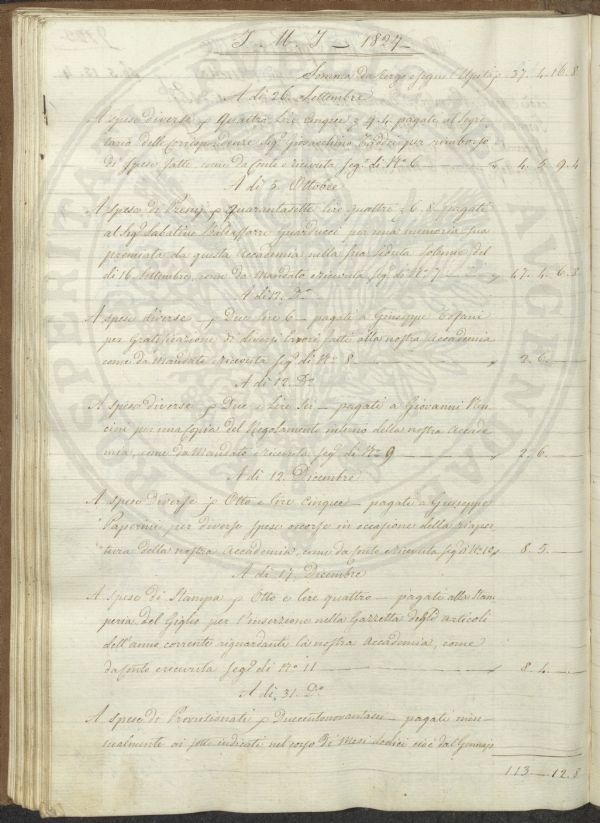 J. M. J. — 1827 —
Somma da tergo e segue l'Uscita 37. 4. 16. 8
A di 26. Settembre
A spese diverse p Quattro Lire cinque e 9.4 pagate al Segre
tario delle Corrispondenze Sigr. Giovacchino Taddei per rimborso
di spese fatte, come da conto e ricevuta segta. di No. 6 — 4. 5. 9. 4
A di 5. Ottobre
A spese di Premj p Quarantasette lire quattro e 6. 8. pagati
al Sigr. Sabatino Baldassarre Guarducci per una memoria sua
premiata da questa Accademia nella sua Seduta Solenne del
di 16 Settembre, come da Mandato e ricevuta segta. di No. 7 — 47. 4. 6. 8
A di 12. Do.
A spese diverse — p Due Lire 6 — pagate a Giuseppe Tofani
per gratificazione di diversi lavori fatti alla nostra Accademia
come da Mandato e ricevuta segta. di No. 8 — 2. 6. —
A di 12. Do.
A spese diverse p Due e Lire Sei — pagati a Giovanni Ven
cini per una copia del Regolamento interno della nostra Accade
mia, come da Mandato e ricevuta segta. di No. 9 — 2. 6. —
A di 12. Dicembre
A spese Diverse p Otto e lire cinque — pagati a Giuseppe
Paperini per diverse spese occorse in occasione della riaper
tura della nostra Accademia, come da conto e ricevuta segta. di No. 10 8. 5. —
A di 17. Dicembre
A spese di Stampa p Otto e lire quattro — pagati alla Stam
peria del Giglio per l'inserzione nella Gazzetta degli articoli
dell'anno corrente riguardante la nostra Accademia, come
da conto e ricevuta segta. di No. 11 — 8. 4. —
A di 31. Do.
A spese di Provvisionati p Duecentonovantasei — pagati men
sualmente ai sotto indicati nel corso di Mesi dodici cioè dal Gennajo
113 — 12. 8
PROSPERITATI AUGENDAE